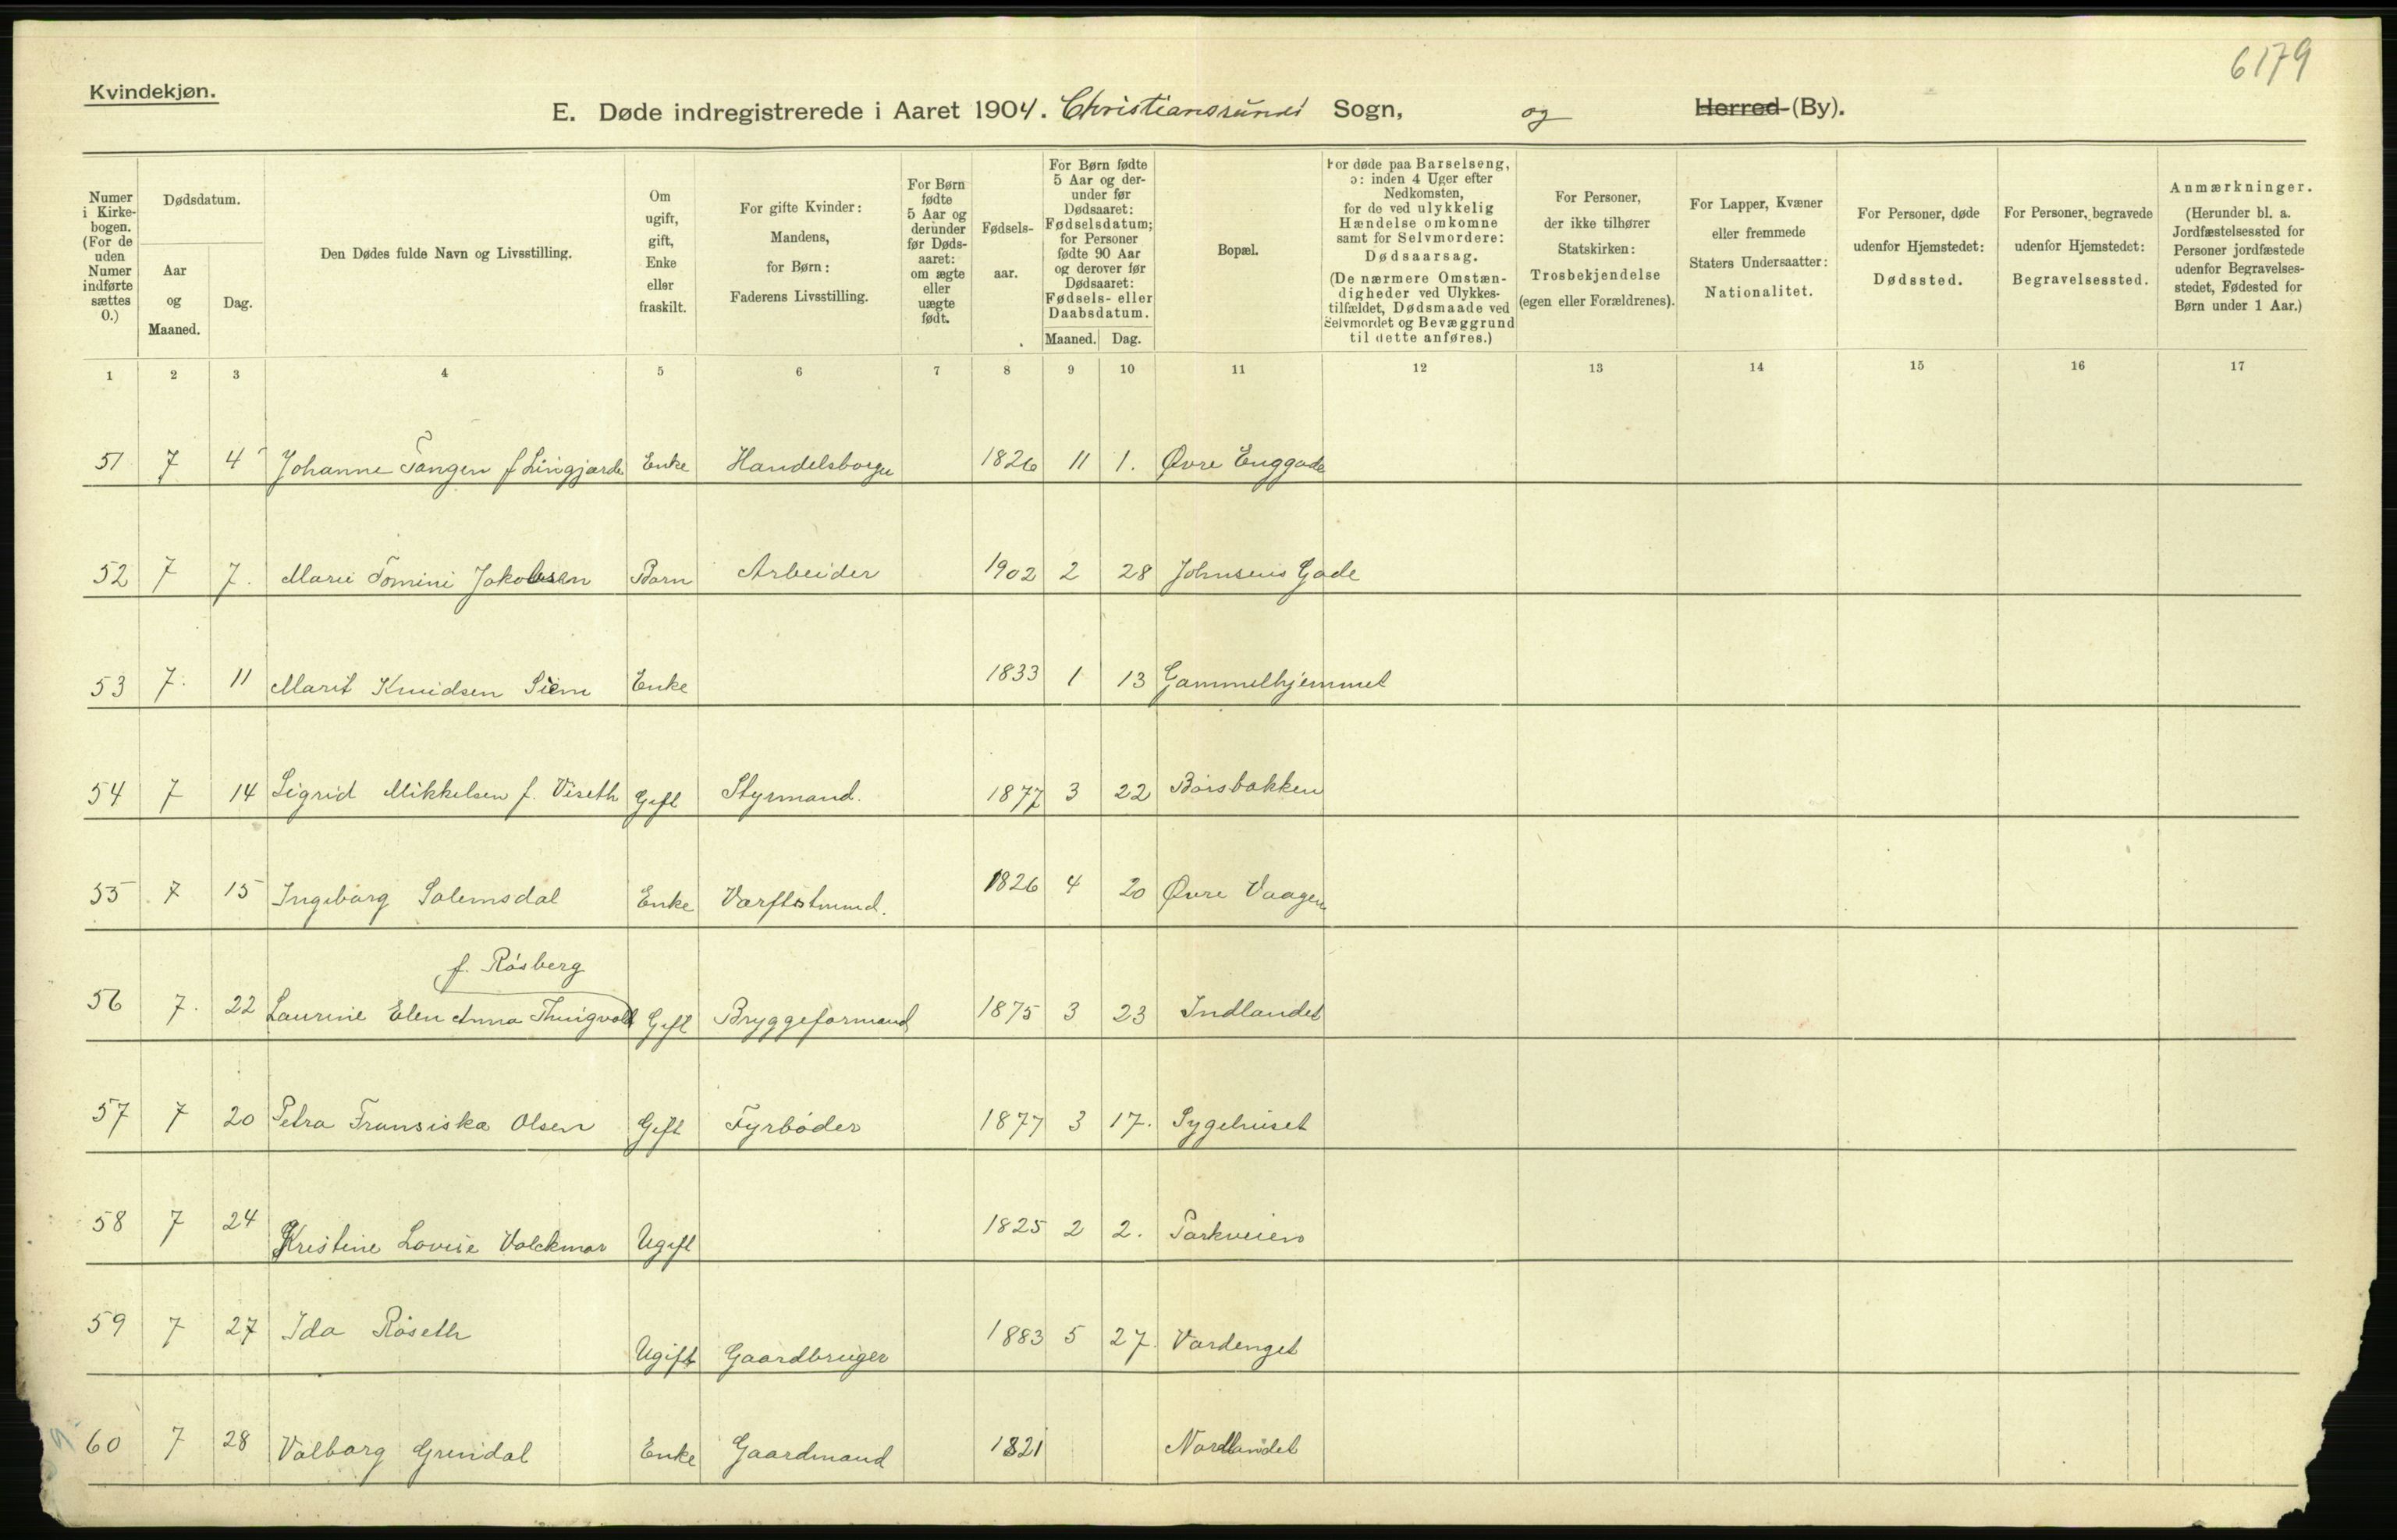 6179
Kvindekjøn.
E. Døde indregistrerede i Aaret 1904. Christianssunds Sogn, og Herred (By).
Numer i Kirkebogen. (For de uden Numer indførte sættes 0.)
Dødsdatum.
Aar og Maaned.
Dag.
Den Dødes fulde Navn og Livsstilling.
Om ugift, gift, Enke eller fraskilt.
For gifte Kvinder: Mandens, for Børn: Faderens Livsstilling.
For Børn fødte 5 Aar og derunder før Dødsaaret: om ægte eller uægte født.
Fødselsaar.
For Børn fødte 5 Aar og derunder før Dødsaaret: Fødselsdatum; for Personer fødte 90 Aar og derover før Dødsaaret: Fødsels- eller Daabsdatum.
Maaned. Dag.
Bopæl.
For døde paa Barselseng, ɔ: inden 4 Uger efter Nedkomsten, for de ved ulykkelig Hændelse omkomne samt for Selvmordere: Dødsaarsag. (De nærmere Omstændigheder ved Ulykkestilfældet, Dødsmaade ved Selvmordet og Bevæggrund til dette anføres.)
For Personer, der ikke tilhører Statskirken: Trosbekjendelse (egen eller Forældrenes).
For Lapper, Kvæner eller fremmede Staters Undersaatter: Nationalitet.
For Personer, døde udenfor Hjemstedet: Dødssted.
For Personer, begravede udenfor Hjemstedet: Begravelsessted.
Anmærkninger. (Herunder bl. a. Jordfæstelsessted for Personer jordfæstede udenfor Begravelsesstedet, Fødested for Børn under 1 Aar.)
1 2 3 4 5 6 7 8 9 10 11 12 13 14 15 16 17
51 7 4 Johanne Tangen f Lingjærde Enke Handelsborger 1826 11 1. Øvre Enggade
52 7 7. Marie Tomine Jakobsen Barn Arbeider 1902 2 28 Johnsens Gade
53 7. 11 Marit Knudsen Siem Enke 1833 1 13 Gammelhjemmet
54 7 14 Sigrid Mikkelsen f. Viseth Gift Styrmand. 1877 3 22 Børsbakken
55 7 15 Ingeborg Solemsdal Enke Værftstmd. 1826 4 20 Øvre Vaagen
f. Røsberg
56 7. 22 Laurine Elen Anna Thingvold Gift Bryggeformand 1875 3 23 Indlandet
57 7 20 Petra Fransiska Olsen Gift Fyrbøder 1877 3 17. Sygehuset
58 7 24 Kristine Lovise Volckmar Ugift 1825 2 2. Parkveien
59 7 27 Ida Røseth Ugift Gaardbruger 1883 5 27. Vardenget
60 7 28 Valborg Grendal Enke Gaardmand 1821 Nordlandet